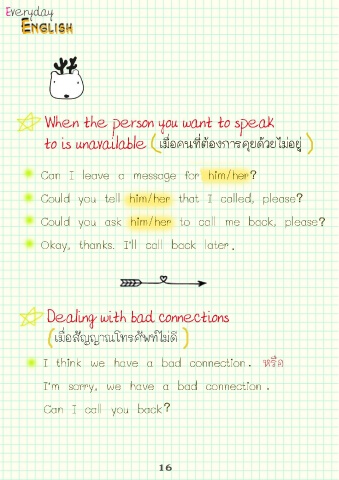 Everyday
ENGLISH
When the person you want to speak
to is unavailable (เมื่อคนที่ต้องการคุยด้วยไม่อยู่)
Can I leave a message for him/her?
Could you tell him/her that I called, please?
Could you ask him/her to call me back, please?
Okay, thanks. I'll call back later.
Dealing with bad connections
(เมื่อสัญญาณโทรศัพท์ไม่ดี)
I think we have a bad connection. หรือ
I'm sorry, we have a bad connection.
Can I call you back?
16